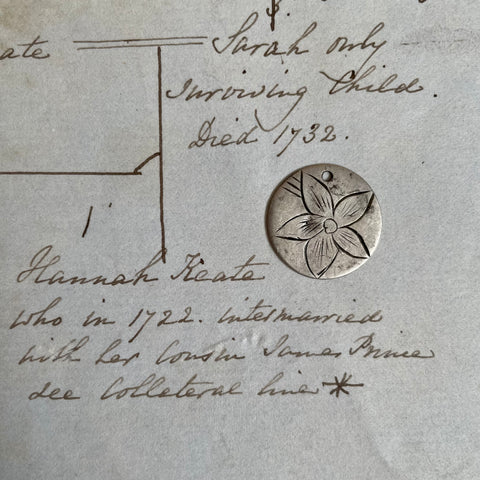 ate
Sarah only
Surviving Child.
Died 1732.
1
Hannah Keate
who in 1722. intermarried
with her Cousin James Prince
see Collateral line *